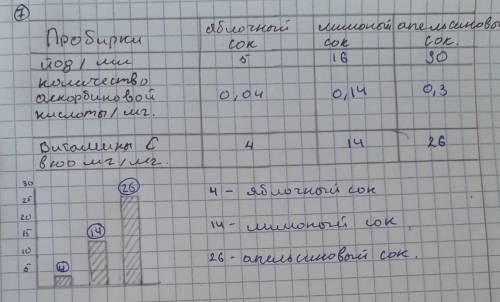 7
Пробирки яблочный сок лимоный сок апельсиновый сок.
йод / мл 5 16 30
количество аскорбиновой кислоты / мг. 0,04 0,14 0,3
Витамины С в 100 мг / мг. 4 14 26
30
25
20
15
10
5
4
14
26
4 - яблочный сок
14 - лимоный сок.
26 - апельсиновый сок.